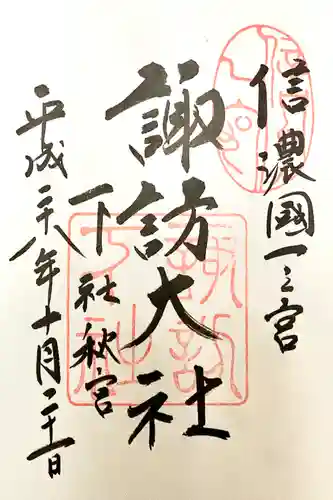 信濃國一之宮
諏訪大社
下社秋宮
平成二十八年十月二十一日